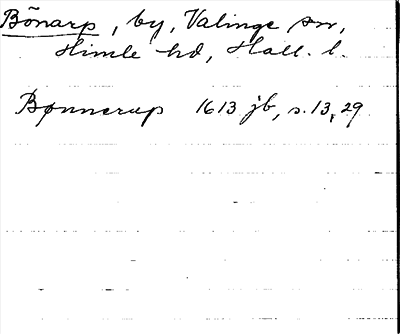 Bönarp, by, Valinge sn,
Himle hd, Hall. l.
Bønnerup 1613 jb, s. 13, 29